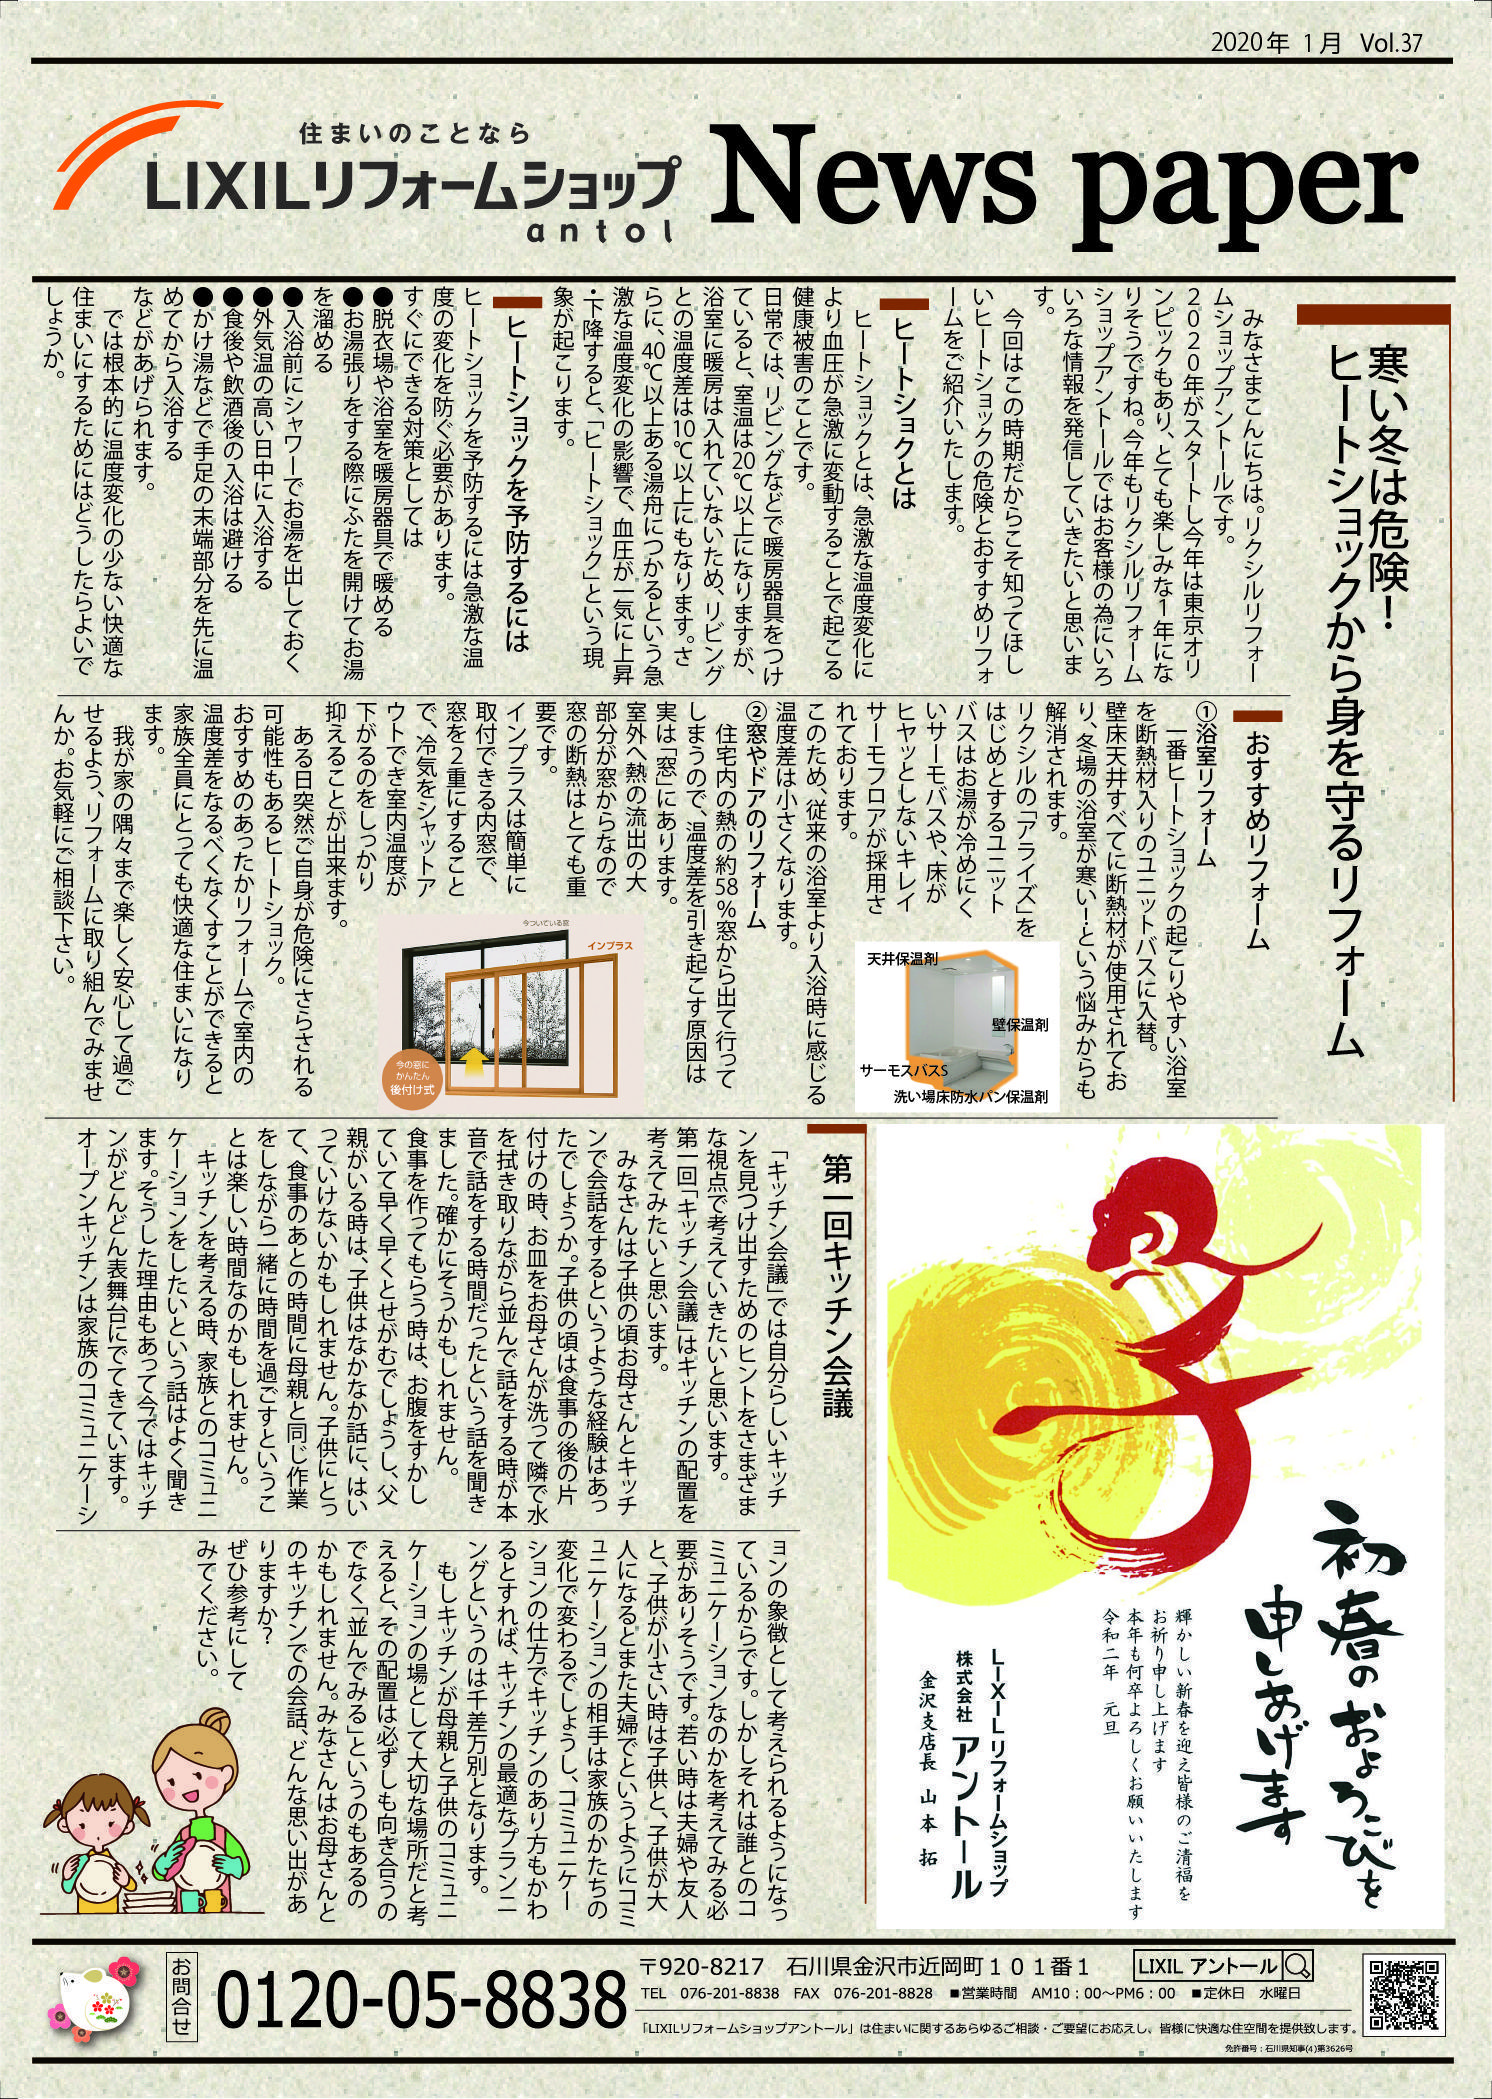 2020年 1月 Vol.37
住まいのことなら
LIXILリフォームショップ
antol
News paper
寒い冬は危険！
ヒートショックから身を守るリフォーム
みなさまこんにちは。リクシルリフォー
ムショップアントールです。
２０２０年がスタートし今年は東京オリ
ンピックもあり、とても楽しみな１年にな
りそうですね。今年もリクシルリフォーム
ショップアントールではお客様の為にいろ
いろな情報を発信していきたいと思いま
す。
今回はこの時期だからこそ知ってほし
いヒートショックの危険とおすすめリフォ
ームをご紹介いたします。
ヒートショクとは
ヒートショックとは、急激な温度変化に
より血圧が急激に変動することで起こる
健康被害のことです。
日常では、リビングなどで暖房器具をつけ
ていると、室温は20℃以上になりますが、
浴室に暖房は入れていないため、リビング
との温度差は10℃以上にもなります。さ
らに、40℃以上ある湯舟につかるという急
激な温度変化の影響で、血圧が一気に上昇
・下降すると、「ヒートショック」という現
象が起こります。
ヒートショックを予防するには
ヒートショックを予防するには急激な温
度の変化を防ぐ必要があります。
すぐにできる対策としては
●脱衣場や浴室を暖房器具で暖める
●お湯張りをする際にふたを開けてお湯
を溜める
●入浴前にシャワーでお湯を出しておく
●外気温の高い日中に入浴する
●食後や飲酒後の入浴は避ける
●かけ湯などで手足の末端部分を先に温
めてから入浴する
などがあげられます。
では根本的に温度変化の少ない快適な
住まいにするためにはどうしたらよいで
しょうか。
おすすめリフォーム
①浴室リフォーム
一番ヒートショックの起こりやすい浴室
を断熱材入りのユニットバスに入替。
壁床天井すべてに断熱材が使用されてお
り、冬場の浴室が寒い！という悩みからも
解消されます。
リクシルの「アライズ」を
はじめとするユニット
バスはお湯が冷めにく
いサーモバスや、床が
ヒヤッとしないキレイ
サーモフロアが採用さ
れております。
このため、従来の浴室より入浴時に感じる
温度差は小さくなります。
②窓やドアのリフォーム
住宅内の熱の約58％窓から出て行って
しまうので、温度差を引き起こす原因は
実は「窓」にあります。
室外へ熱の流出の大
部分が窓からなので
窓の断熱はとても重
要です。
インプラスは簡単に
取付できる内窓で、
窓を２重にすること
で、冷気をシャットア
ウトでき室内温度が
下がるのをしっかり
抑えることが出来ます。
ある日突然ご自身が危険にさらされる
可能性もあるヒートショック。
おすすめのあったかリフォームで室内の
温度差をなるべくなくすことができると
家族全員にとっても快適な住まいになり
ます。
我が家の隅々まで楽しく安心して過ご
せるよう、リフォームに取り組んでみませ
んか。お気軽にご相談下さい。
天井保温剤
壁保温剤
サーモスバスS
洗い場床防水パン保温剤
今ついている窓
インプラス
今の窓に
かんたん
後付け式
第一回キッチン会議
「キッチン会議」では自分らしいキッチ
ンを見つけ出すためのヒントをさまざま
な視点で考えていきたいと思います。
第一回「キッチン会議」はキッチンの配置を
考えてみたいと思います。
みなさんは子供の頃お母さんとキッチ
ンで会話をするというような経験はあっ
たでしょうか。子供の頃は食事の後の片
付けの時、お皿をお母さんが洗って隣で水
を拭き取りながら並んで話をする時が本
音で話をする時間だったという話を聞き
ました。確かにそうかもしれません。
食事を作ってもらう時は、お腹をすかし
ていて早く早くとせがむでしょうし、父
親がいる時は、子供はなかなか話に、はい
っていけないかもしれません。子供にとっ
て、食事のあとの時間に母親と同じ作業
をしながら一緒に時間を過ごすというこ
とは楽しい時間なのかもしれません。
キッチンを考える時、家族とのコミュニ
ケーションをしたいという話はよく聞き
ます。そうした理由もあって今ではキッチ
ンがどんどん表舞台にでてきています。
オープンキッチンは家族のコミュニケーシ
ョンの象徴として考えられるようになっ
ているからです。しかしそれは誰とのコ
ミュニケーションなのかを考えてみる必
要がありそうです。若い時は夫婦や友人
と、子供が小さい時は子供と、子供が大
人になるとまた夫婦でというようにコミ
ュニケーションの相手は家族のかたちの
変化で変わるでしょうし、コミュニケー
ションの仕方でキッチンのあり方もかわ
るとすれば、キッチンの最適なプランニ
ングというのは千差万別となります。
もしキッチンが母親と子供のコミュニ
ケーションの場として大切な場所だと考
えると、その配置は必ずしも向き合うの
でなく「並んでみる」というのもあるの
かもしれません。みなさんはお母さんと
のキッチンでの会話、どんな思い出があ
りますか？
ぜひ参考にして
みてください。
初春のおよろこびを
申しあげます
輝かしい新春を迎え皆様のご清福を
お祈り申し上げます
本年も何卒よろしくお願いいたします
令和二年 元旦
LIXILリフォームショップ
株式会社 アントール
金沢支店長 山本 拓
お問合せ
0120-05-8838
〒920-8217 石川県金沢市近岡町１０１番１
LIXIL アントール
TEL 076-201-8838 FAX 076-201-8828 ■営業時間 AM10：00～PM6：00 ■定休日 水曜日
「LIXILリフォームショップアントール」は住まいに関するあらゆるご相談・ご要望にお応えし、皆様に快適な住空間を提供致します。
免許番号：石川県知事(4)第3626号